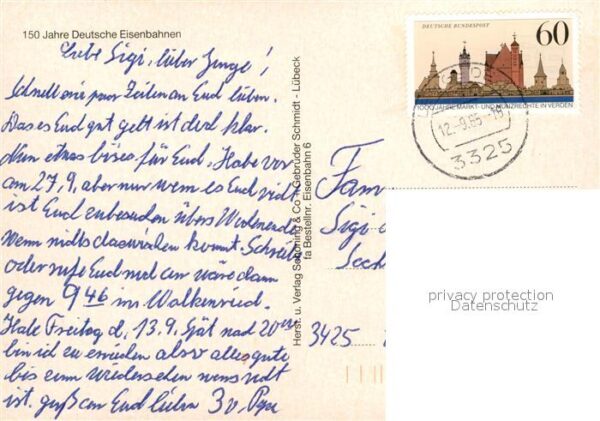 150 Jahre Deutsche Eisenbahnen
Liebe Sigi, lieber Junge!
Schnell ein paar Zeilen an Euch lieben.
Das es Euch gut geht ist doch klar.
Nun etwas böses für Euch. Habe vor
am 27.9. aber nur wenn es Euch recht
ist Euch zu besuchen übers Wochenende
wenn nichts dazwischen kommt. Schreibe
oder rufe Euch mal an wäre dann
gegen 9 46 in Walkenried.
Freitag d. 13.9. nach 20 Uhr
bin ich zu erreichen also alles gute
bis zum wiedersehen wenns recht
ist. gruß an Euch lieben
Herst. u. Verlag Schöning & Co + Gebrüder Schmidt - Lübeck
fa Bestellnr. Eisenbahn 6
DEUTSCHE BUNDESPOST
60
1000 JAHRE MARKT- UND MÜNZRECHTE IN VERDEN
12.-9.85.-19
3325
Fam
Sigi
3425
privacy protection
Datenschutz